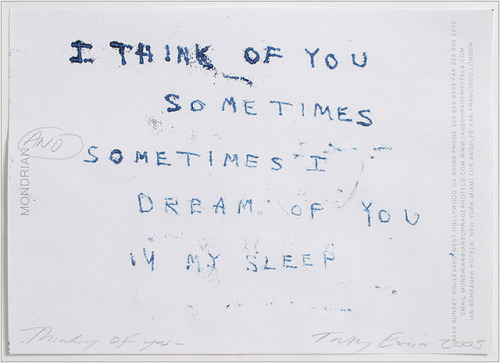 I THINK OF YOU
SOMETIMES
SOMETIMES I
DREAM OF YOU
IN MY SLEEP
Thinking of you -
Tracey Emin 2005
MONDRIAN
AND
8440 SUNSET BOULEVARD WEST HOLLYWOOD CA 90069 PHONE 323 650 8999 FAX 323 650 5215
IAN SCHRAGER HOTELS: NEW YORK MIAMI LOS ANGELES SAN FRANCISCO LONDON